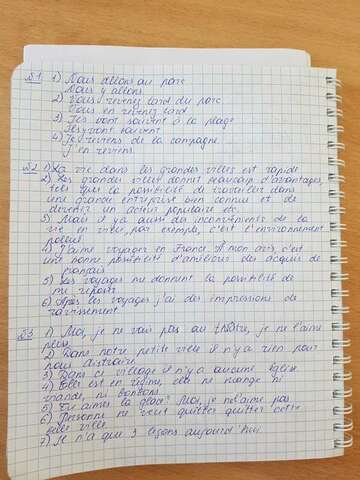 №1 1) Nous allons au parc
Nous y allons.
2) Vous revenez tard du parc
Vous en revenez tard
3) Ils vont souvent à la plage
Ils y vont souvent
4) Je reviens de la campagne
J'en reviens.
№2 1) La vie dans les grandes villes est rapide
2) Les grandes villes donnent beaucoup d'avantages,
tels que la possibilité de travailler dans
une grande entreprise bien connue et de
devenir un acteur populaire etc.
3) Mais il y a aussi des inconvénients de la
vie en ville, par exemple, c'est l'environnement
pollué
4) J'aime voyager en France. A mon avis, c'est
une bonne possibilité d'améliorer des acquis de
français
5) Les voyages me donnent la possibilité de
me reposer
6) Après les voyages j'ai des impressions de
ravissement
№3 1) Moi, je ne vais pas au théâtre, je ne l'aime
plus.
2) Dans notre petite ville il n'y a rien pour
nous distraire
3) Dans ce village il n'y a aucune église
4) Elle est en régime, elle ne mange ni
viande, ni bonbons
5) Tu aimes la glace? Moi, je ne l'aime pas
6) Personne ne veut quitter quitter cette
belle ville
7) Je n'a que 3 leçons aujourd'hui